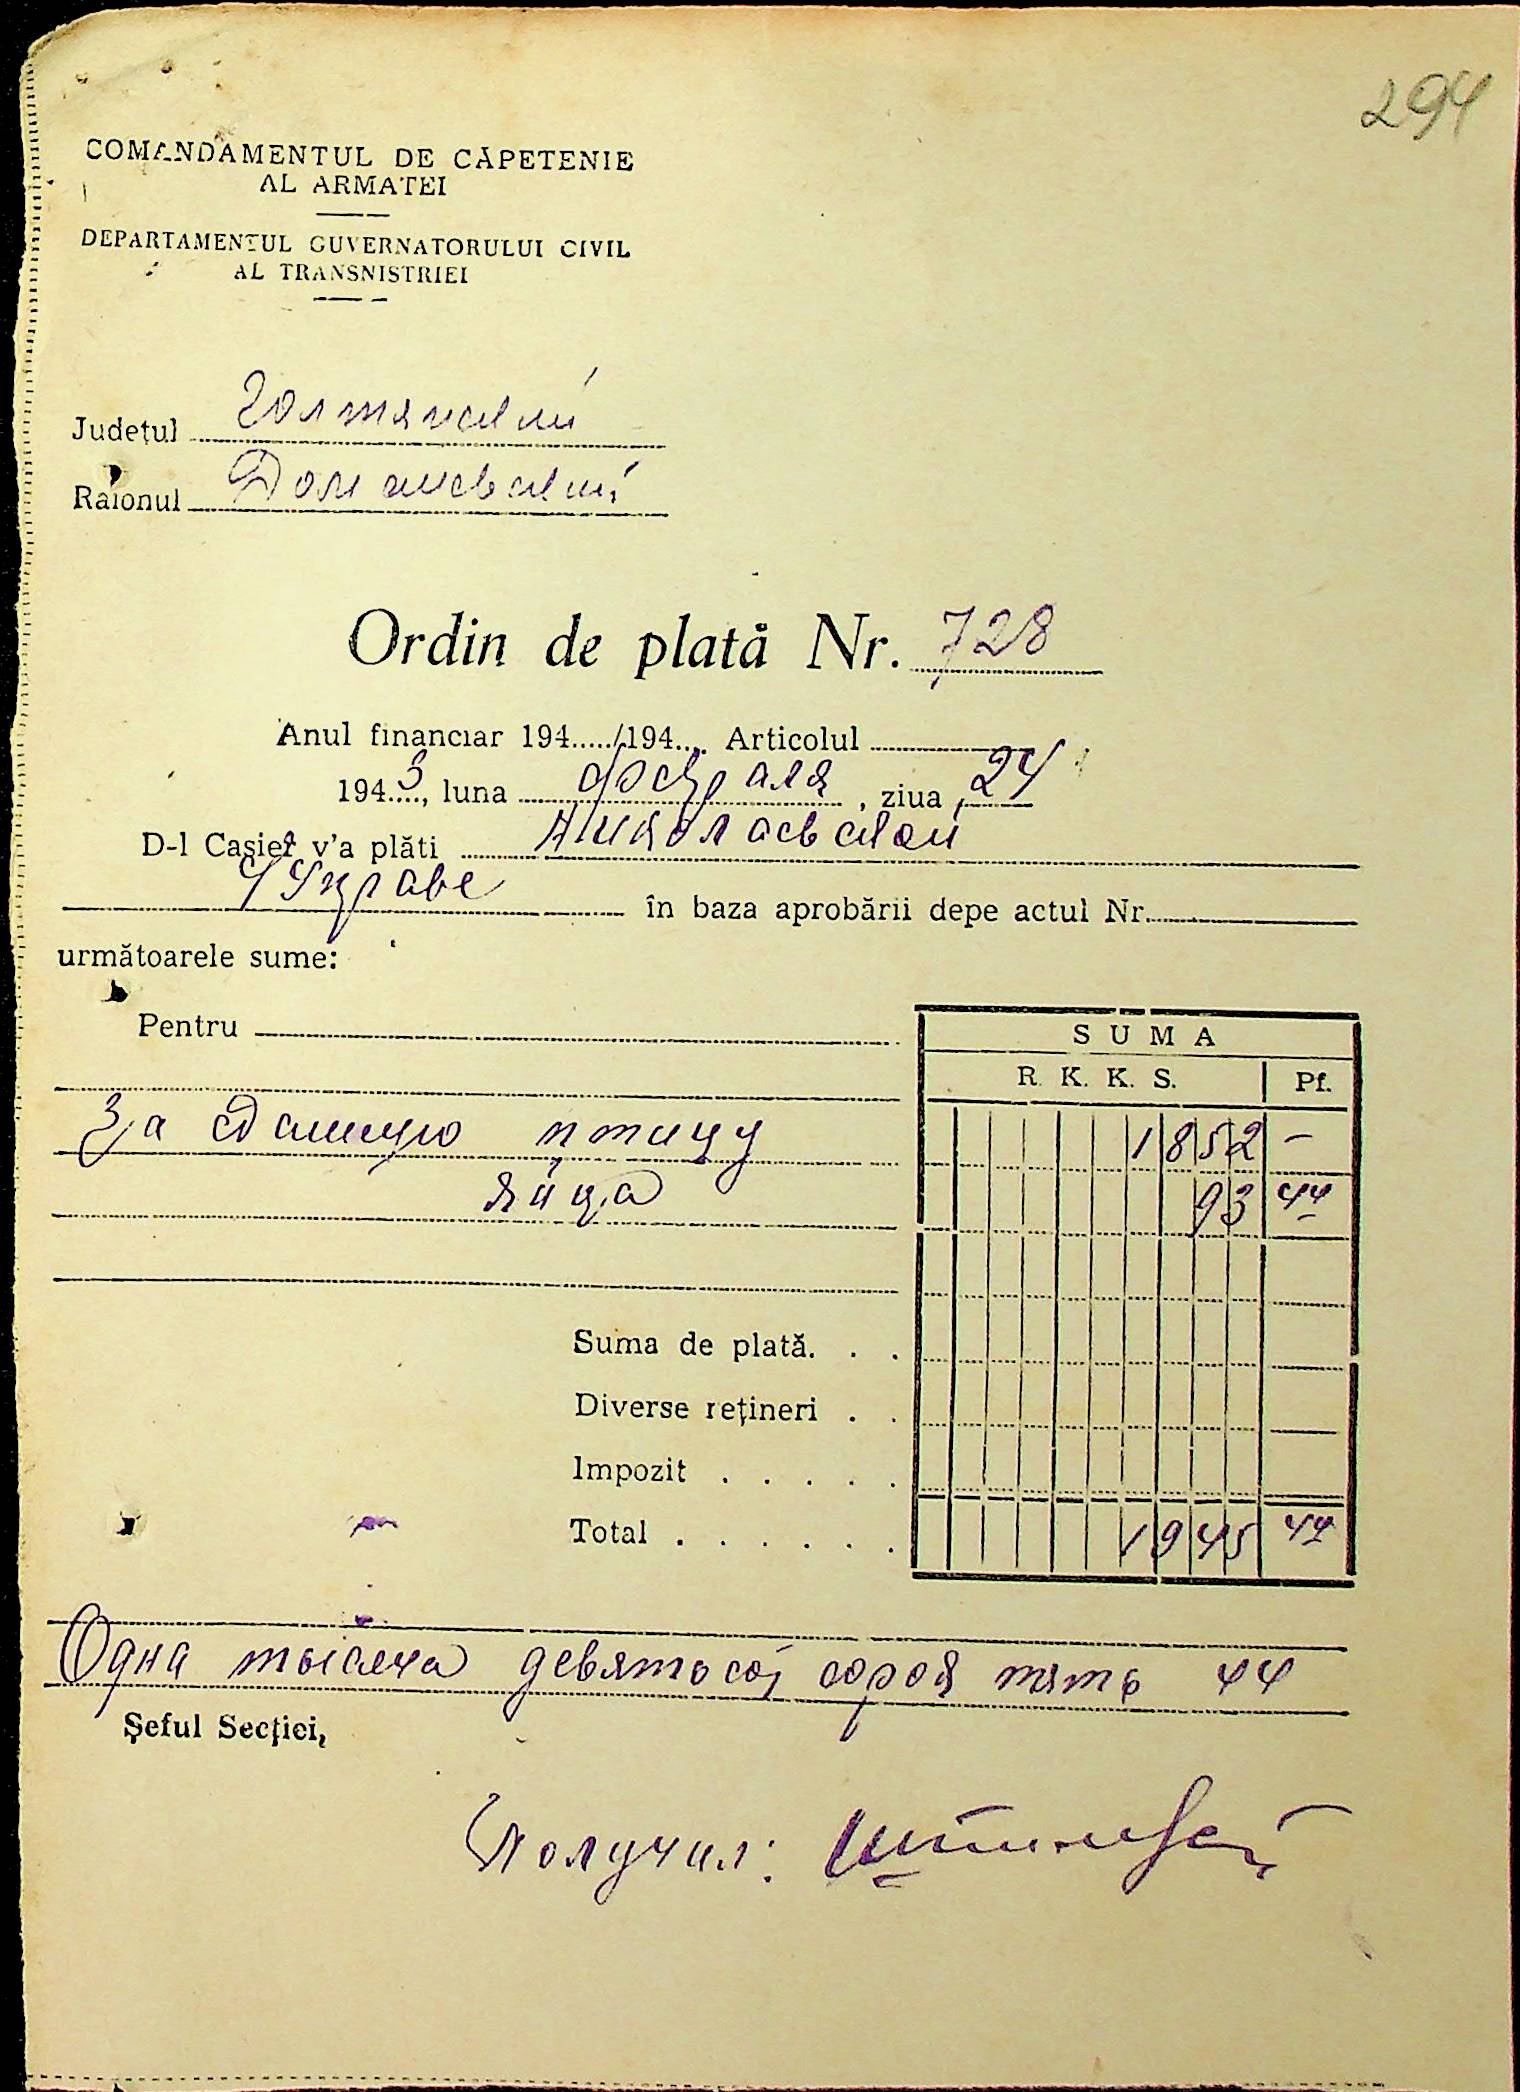 294
COMANDAMENTUL DE CĂPETENIE
AL ARMATEI
DEPARTAMENTUL GUVERNATORULUI CIVIL
AL TRANSNISTRIEI
Județul Голтянский
Raionul Доманевский
Ordin de plată Nr. 728
Anul financiar 194...../194.... Articolul
1943, luna февраля, ziua 24
D-l Casier v'a plăti Николаевской
Управе în baza aprobării depe actul Nr.
următoarele sume:
Pentru
SUMA
R. K. K. S. Pf.
За сданную птицу 1852 —
яйца 93 44
Suma de plată. . .
Diverse rețineri . .
Impozit . . . . .
Total . . . . . . 1945 44
Одна тысяча девятьсот сорок пять 44
Șeful Secției,
Получил: